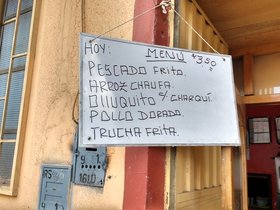 HOY: MENÚ $3,50
PESCADO FRITO.
ARROZ CHAUFA.
OLLUQUITO C/ CHARQUI.
POLLO DORADO.
TRUCHA FRITA.
1610